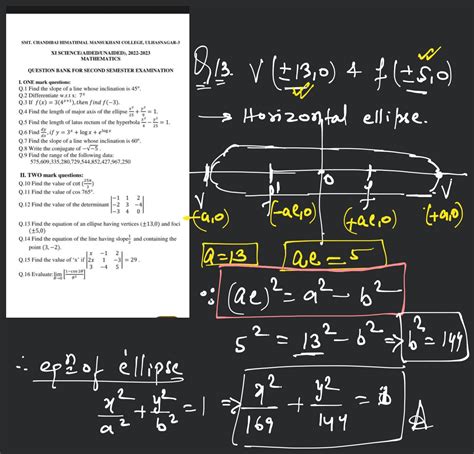 SMT. CHANDIBAI HIMATHMAL MANSUKHANI COLLEGE, ULHASNAGAR-3
XI SCIENCE(AIDED/UNAIDED), 2022-2023
MATHEMATICS
QUESTION BANK FOR SECOND SEMESTER EXAMINATION
I. ONE mark questions:
Q.1 Find the slope of a line whose inclination is 45°.
Q.2 Differentiate w.r.t x: 7ˣ
Q.3 If f(x) = 3(4ˣ⁺¹), then find f(−3).
Q.4 Find the length of major axis of the ellipse x²/25 + y²/9 = 1.
Q.5 Find the length of latus rectum of the hyperbola
Q.6 Find dy/dx, if y = 3ˣ + log x + e^(log x)
Q.7 Find the slope of a line whose inclination is 60°.
Q.8 Write the conjugate of −√−5.
Q.9 Find the range of the following data:
575,609,335,280,729,544,852,427,967,250
II. TWO mark questions:
Q.10 Find the value of cot
Q.11 Find the value of cos 765°.
Q.12 Find the value of the determinant |−1 1 2|
|−2 3 −4|
|−3 4 0|
Q.13 Find the equation of an ellipse having vertices (±13,0) and foci
(±5,0)
Q.14 Find the equation of the line having slope ½ and containing the
point (3,−2).
Q.15 Find the value of 'x' if |x −1 2|
|2x 1 −3| = 29.
|3 −4 5|
Q.16 Evaluate lim
Q.13. V(±13,0) & f(±5,0)
→ Horizontal ellipse.
V f' O f V
(−a,0) (−ae,0) (+ae,0) (+a,0)
a=13 ae=5
∵ (ae)² = a² − b²
5² = 13² − b² ⇒ b² = 144
∴ eqn of ellipse
x²/a² + y²/b² = 1 ⇒ x²/169 + y²/144 = 1